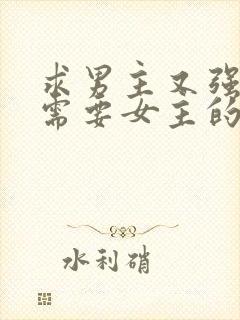 求男主又强
需要女主的
水利硝